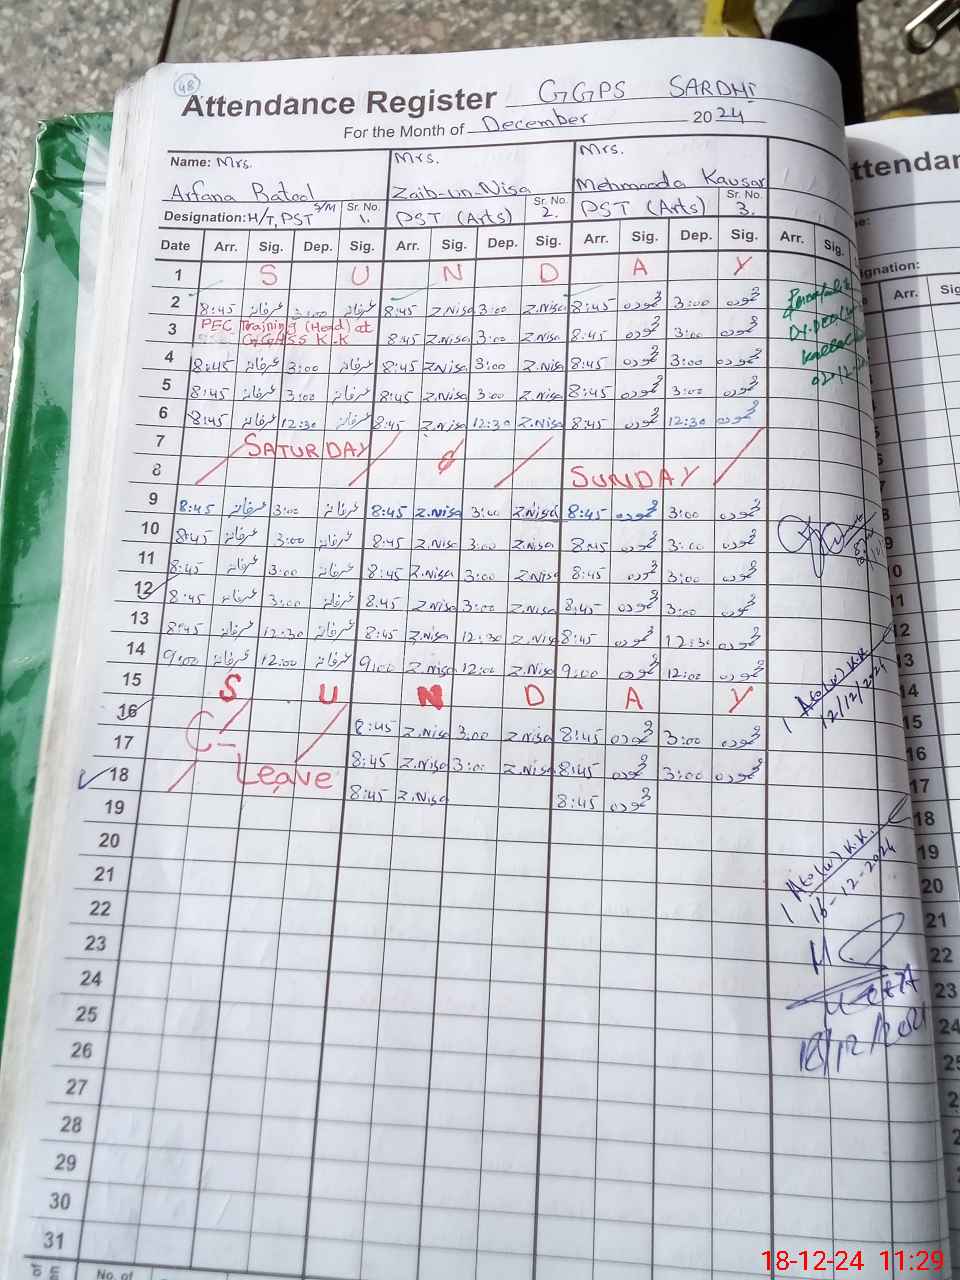 48
Attendance Register GGPS SARDHI
For the Month of December 2024
Name: Mrs. Arfana Batool Mrs. Zaib-un-Nisa Mrs. Mehmooda Kausar
Designation: H/T, PST S/M Sr. No. 1. PST (Arts) Sr. No. 2. PST (Arts) Sr. No. 3.
Date Arr. Sig. Dep. Sig. Arr. Sig. Dep. Sig. Arr. Sig. Dep. Sig. Arr. Sig.
1 S U N D A Y
2 8:45 عرفانہ 3:00 عرفانہ 8:45 Z.Nisa 3:00 Z.Nisa 8:45 محمودہ 3:00 محمودہ
3 PEC Training (Head) at GGHSS K.K 8:45 Z.Nisa 3:00 Z.Nisa 8:45 محمودہ 3:00 محمودہ
4 8:45 عرفانہ 3:00 عرفانہ 8:45 Z.Nisa 3:00 Z.Nisa 8:45 محمودہ 3:00 محمودہ
5 8:45 عرفانہ 3:00 عرفانہ 8:45 Z.Nisa 3:00 Z.Nisa 8:45 محمودہ 3:00 محمودہ
6 8:45 عرفانہ 12:30 عرفانہ 8:45 Z.Nisa 12:30 Z.Nisa 8:45 محمودہ 12:30 محمودہ
7 SATURDAY &
8 SUNDAY
9 8:45 عرفانہ 3:00 عرفانہ 8:45 Z.Nisa 3:00 Z.Nisa 8:45 محمودہ 3:00 محمودہ
10 8:45 عرفانہ 3:00 عرفانہ 8:45 Z.Nisa 3:00 Z.Nisa 8:45 محمودہ 3:00 محمودہ
11 8:45 عرفانہ 3:00 عرفانہ 8:45 Z.Nisa 3:00 Z.Nisa 8:45 محمودہ 3:00 محمودہ
12 8:45 عرفانہ 3:00 عرفانہ 8:45 Z.Nisa 3:00 Z.Nisa 8:45 محمودہ 3:00 محمودہ
13 8:45 عرفانہ 12:30 عرفانہ 8:45 Z.Nisa 12:30 Z.Nisa 8:45 محمودہ 12:30 محمودہ
14 9:00 عرفانہ 12:00 عرفانہ 9:00 Z.Nisa 12:00 Z.Nisa 9:00 محمودہ 12:00 محمودہ
15 S U N D A Y
16 C- 8:45 Z.Nisa 3:00 Z.Nisa 8:45 محمودہ 3:00 محمودہ
17 Leave 8:45 Z.Nisa 3:00 Z.Nisa 8:45 محمودہ 3:00 محمودہ
18 8:45 Z.Nisa 8:45 محمودہ
19
20
21
22
23
24
25
26
27
28
29
30
31
No. of
02.12.
AEO(W) K.K
12/12/2024
AEO(W) K.K.
16-12-2024
MEA
18/12/2024
ttendan
ne:
signation:
Arr. Sig
8
9
10
11
12
13
14
15
16
17
18
19
20
21
22
23
24
25
18-12-24 11:29